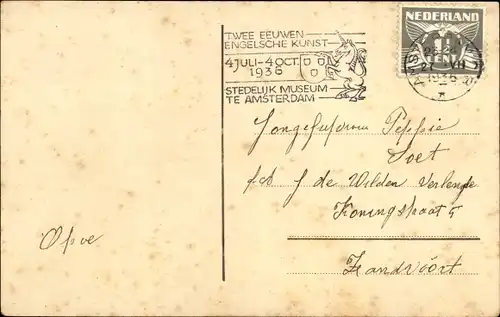 TWEE EEUWEN
ENGELSCHE KUNST
4 JULI-4 OCT.
1936
STEDELIJK MUSEUM
TE AMSTERDAM
NEDERLAND
1936
Jongejufvrouw Peppie
Soet
p/a J de Wilden Verlengde
Koningstraat 5
Zandvoort